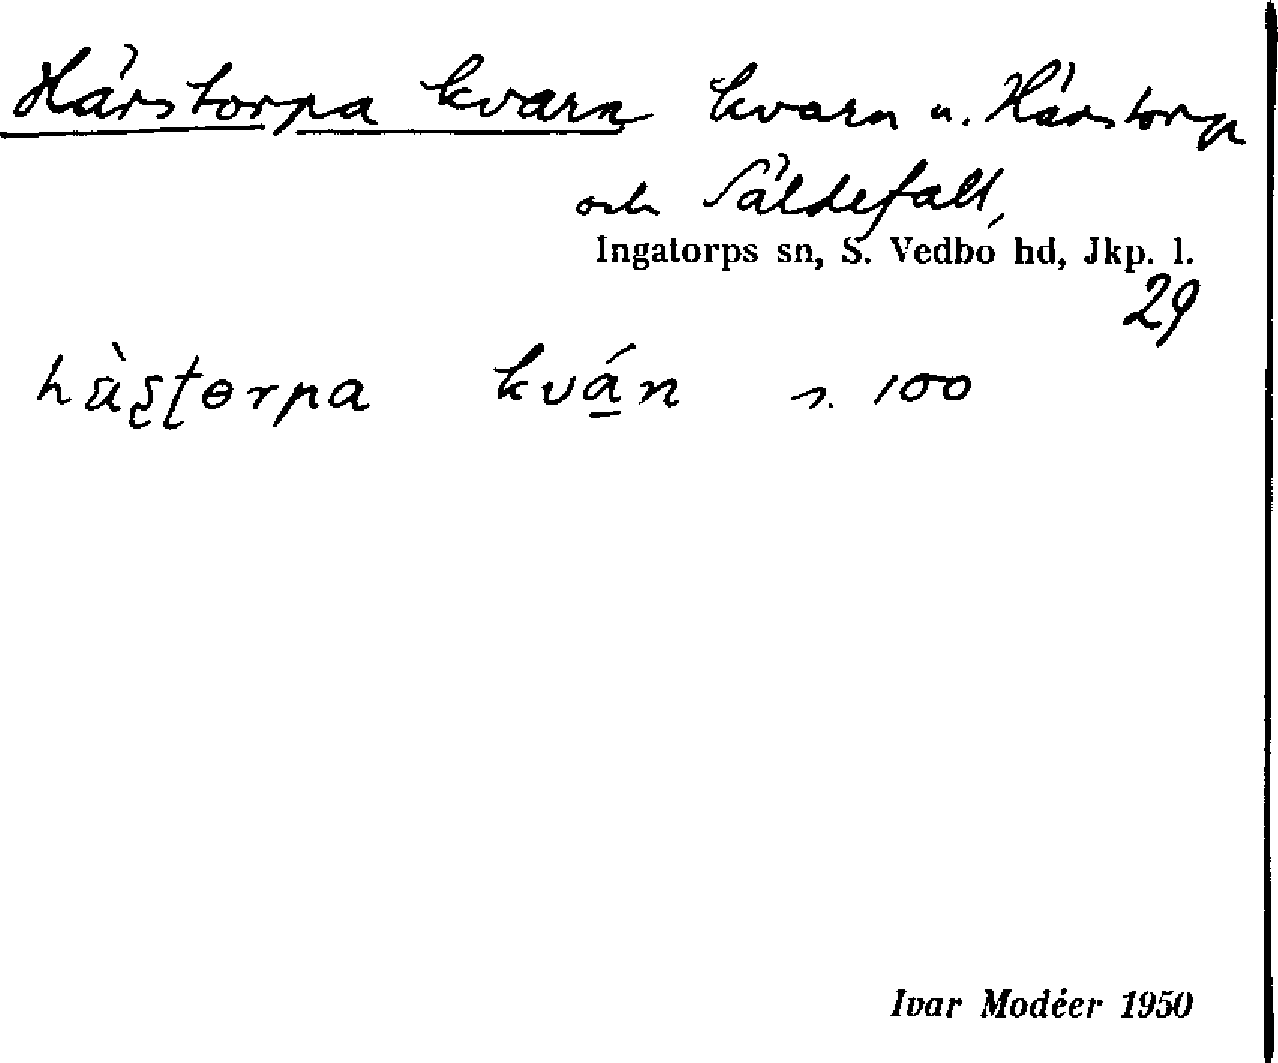 Hårstorpa kvarn kvarn u. Hårstorp
och Säldefall,
Ingatorps sn, S. Vedbo hd, Jkp. l.
29
kván s. 100
Ivar Modéer 1950